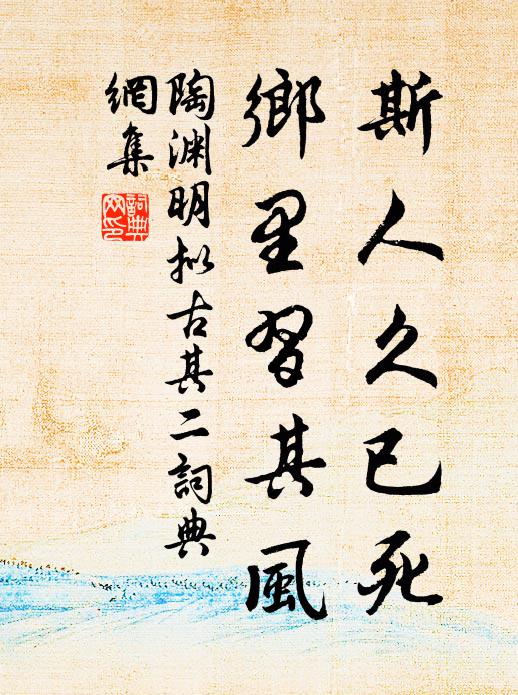 斯人久已死
鄉里習其風
陶渊明拟古其二詞典
網集
詞典
网印